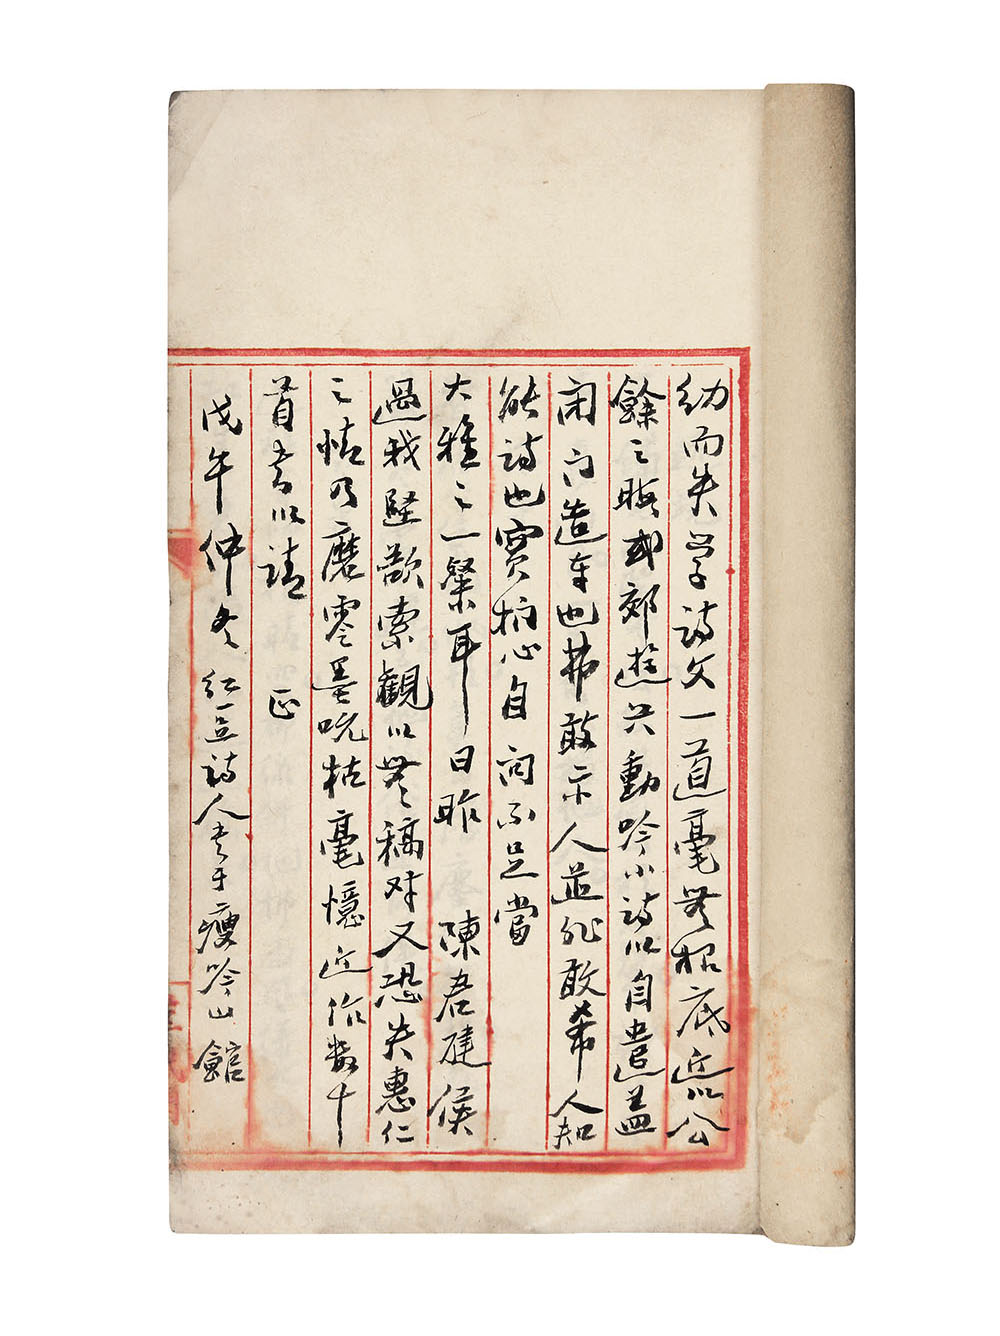 幼而失学詩文一道毫無根底近以公
餘之暇或郊遊只動吟小詩以自遣蓋
閉门造车也弗敢示人並非敢希人知
能詩也實捫心自问不足當
大雅之一粲耳日昨陳君建侯
過我堅歆索觀以無稿对又恐失惠仁
之情乃磨零墨吮枯毫憶近作数十
首书以請　正
戊午仲冬红豆詩人书于瘦吟山館